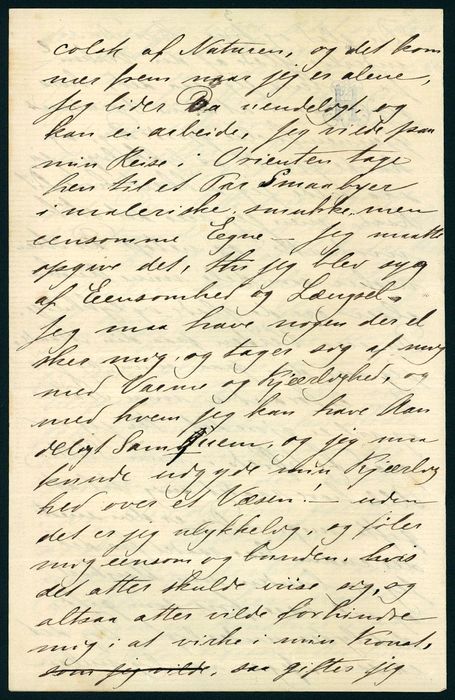 colsk af Naturen, og det kom
mer frem naar jeg er alene,
jeg lider Da uendeligt og
kan ei arbeide, jeg vilde paa
min Reise i Orienten tage
hen til et Par Smaabyer
i maleriske, smukke, men
eensomme Egne – jeg maatte
opgive det, thi jeg blev syg
af Eensomhed og Længsel.
Jeg maa have nogen der el
sker mig, og tager sig af mig
med Varme og Kjærlighed, og
med hvem jeg kan have Aan
deligt Samquem, og jeg maa
kunde udgyde min Kjærlig
hed over et Væsen. – uden
det er jeg ulykkelig, og føler
mig eensom og bunden. hvis
det atter skulde viise sig, og
altsaa atter vilde forhindre
mig i at virke i min Konst,
som jeg vilde, saa gifter jeg